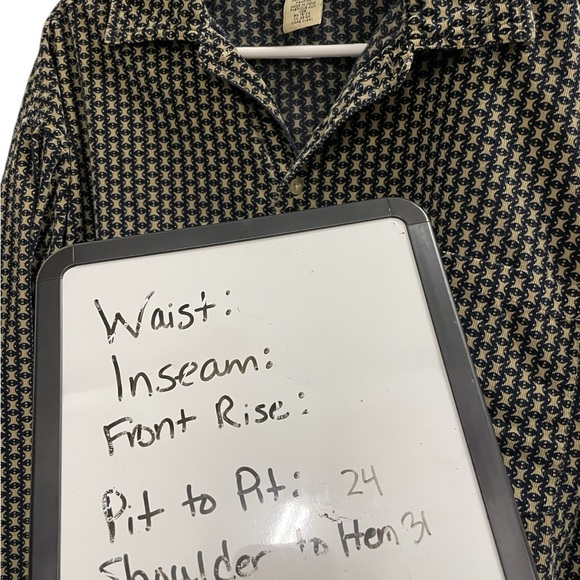 Waist:
Inseam:
Front Rise:
Pit to Pit: 24
Shoulder to Hem 31